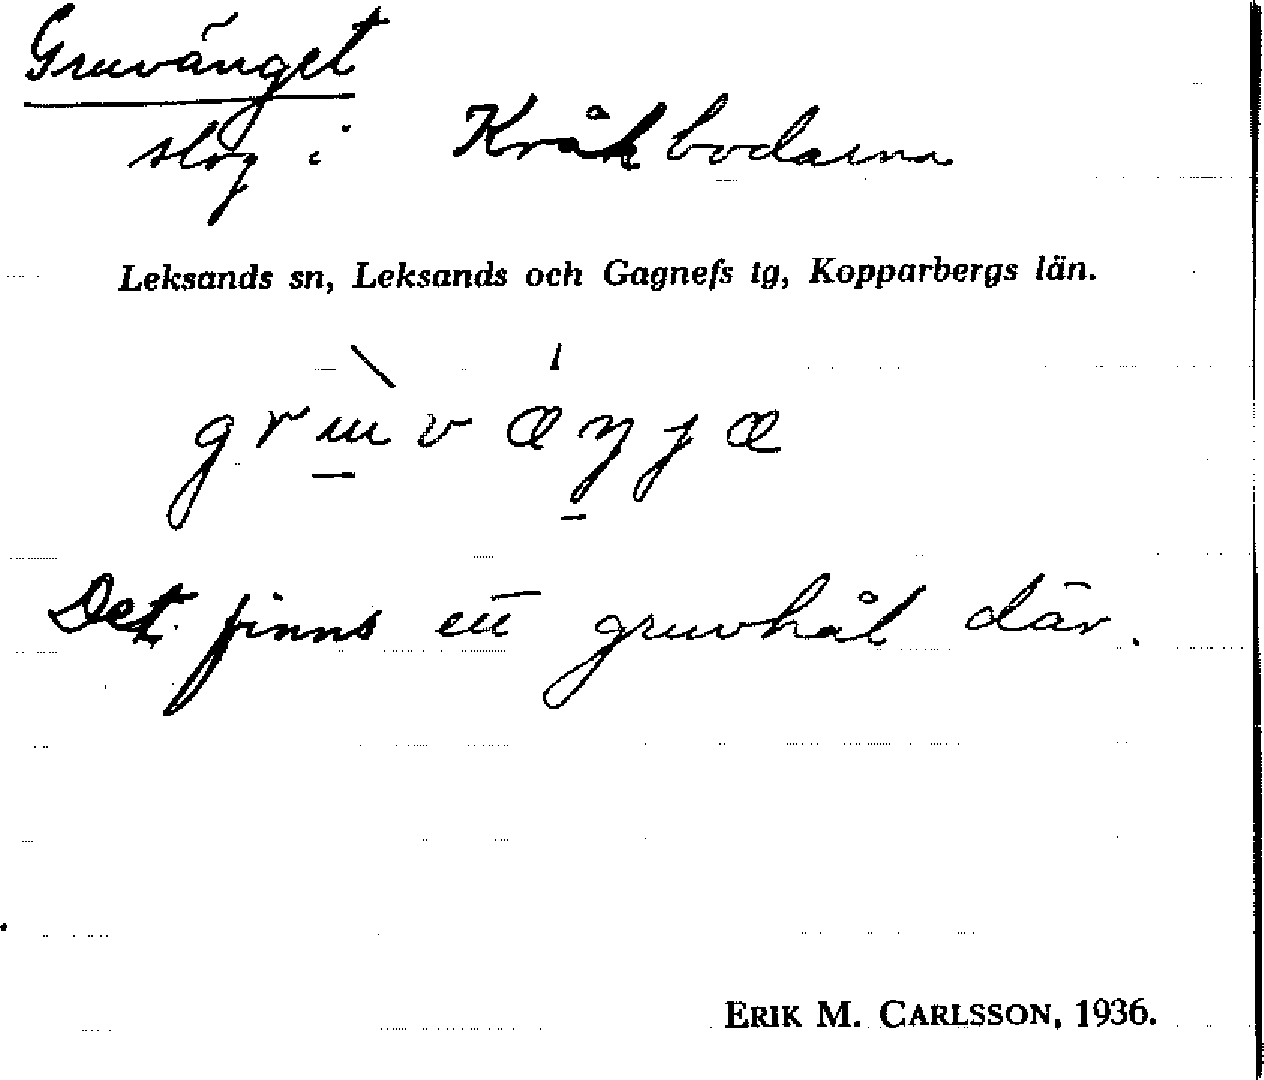 Gruvänget
slog i Kråkbodarna
Leksands sn, Leksands och Gagnefs tg, Kopparbergs län.
Det finns ett gruvhål där.
ERIK M. CARLSSON, 1936.